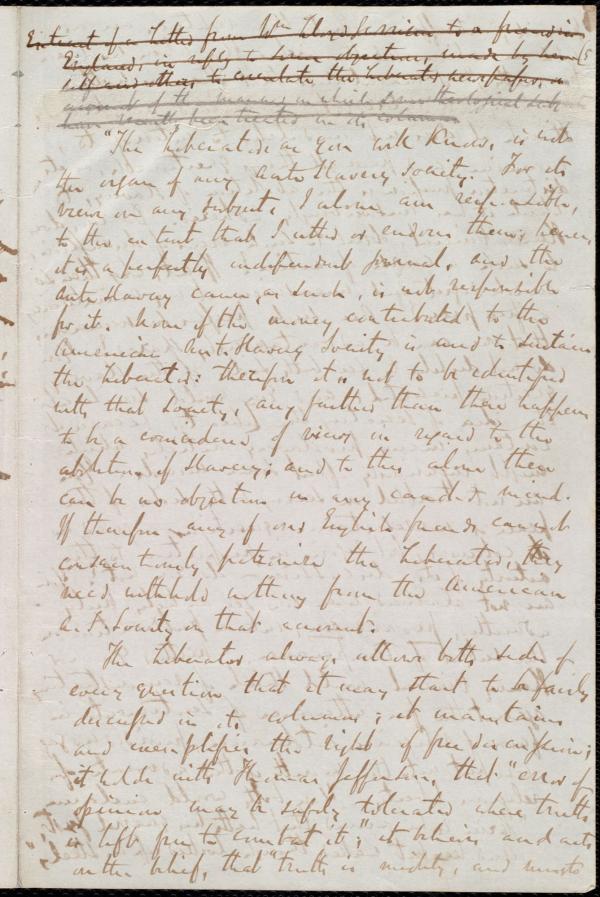 Extract of a letter from Wm Lloyd Garrison to a friend in
England, in reply to some objections made by her
self and others to circulate the Liberator newspaper, on
account of the manner in which some theological subjects
have been treated in its columns.
"The Liberator, as you well know, is not
the organ of any Anti Slavery Society. For its
views on any subject, I alone am responsible,
to the extent that I utter or endorse them; hence,
it is a perfectly independent journal, and the
Anti Slavery cause, as such, is not responsible
for it. None of the money contributed to the
American Anti Slavery Society is used to sustain
the Liberator: therefore it is not to be identified
with that Society, any further than there happens
to be a coincidence of views in regard to the
abolition of Slavery; and to this alone there
can be no objection in any candid mind.
If therefore any of our English friends cannot
conscientiously patronise the Liberator, they
need withhold nothing from the American
A. S. Society on that account.
The Liberator always allows both sides of
every question that it may start to be fairly
discussed in its columns; it maintains
and exemplifies the right of free discussion;
it holds with Thomas Jefferson, that "error of
opinion may be safely tolerated where truth
is left free to combat it;" it believes and acts
on the belief, that "truth is mighty, and must